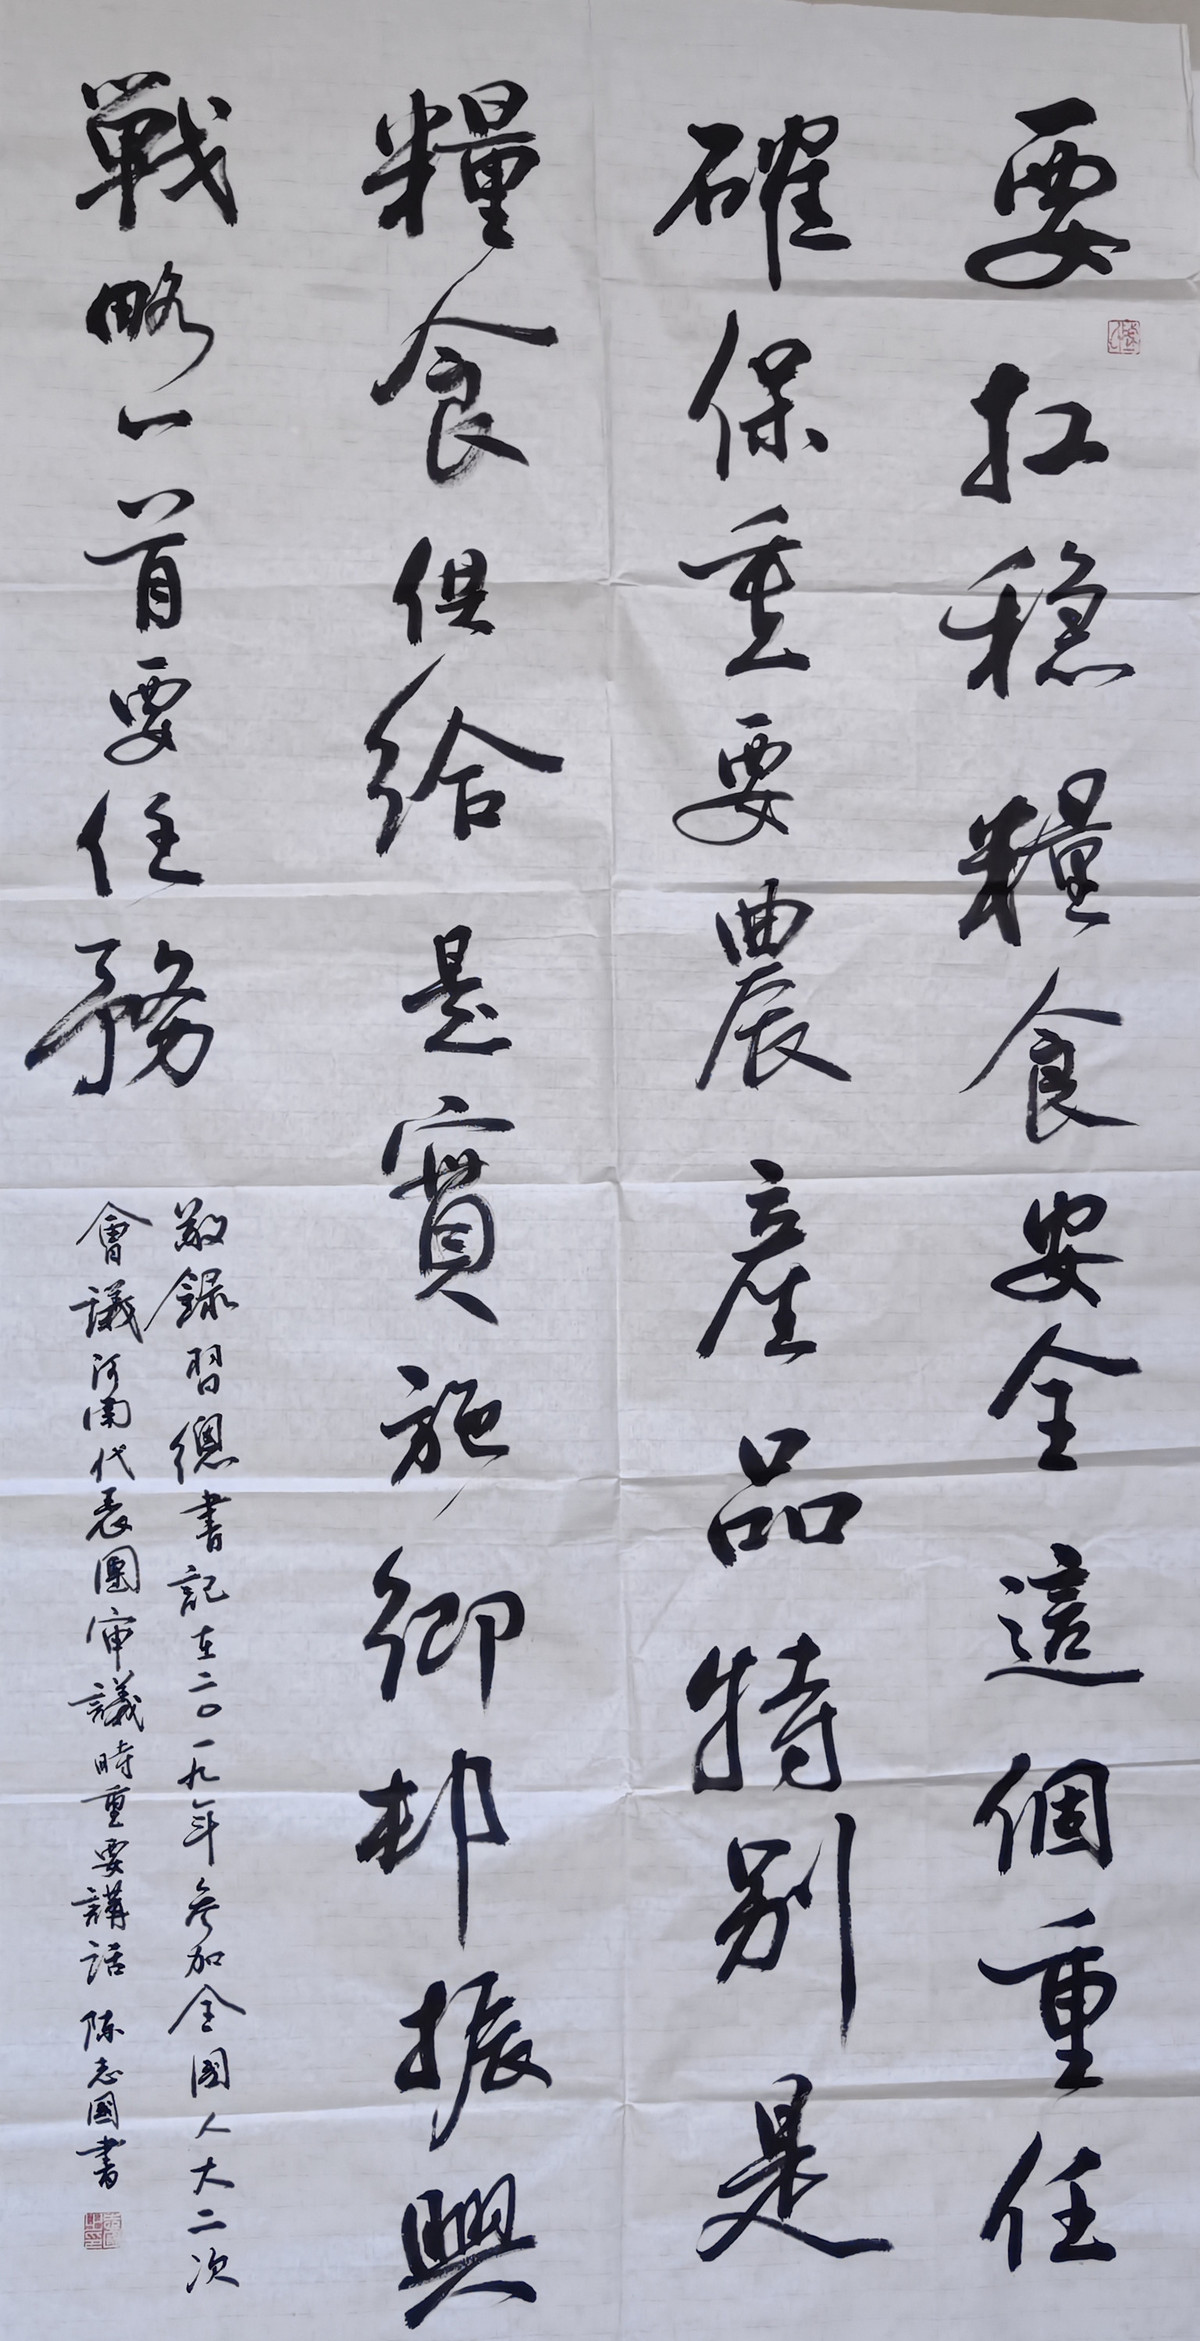 要扛稳糧食安全這個重任
確保重要農產品特别是
糧食供给是實施鄉邨振興
戰略一首要任務
敬録習總書記在二〇一九年参加全國人大二次
會議河南代表團审議時重要講話 陈志國書